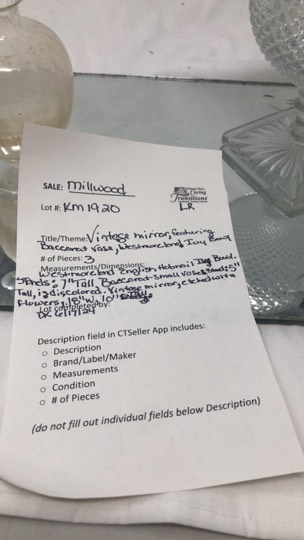 SALE: Millwood
Caring
Transitions
Lot #: KM1920
LR
Title/Theme: Vintage mirror, featuring
Baccored vase, Westmoreland Ivy Bowl
# of Pieces: 3
Measurements/Dimensions:
Westmoreland English Hobnail Ivy Bowl.
Stands: 7" Tall. Baccored small vase stands 5"
Tall, is discolored. Vintage mirror, etched with
flowers, 18" W, 10"
Lot completed by:
DK 6/17/24
Description field in CTSeller App includes:
o Description
o Brand/Label/Maker
o Measurements
o Condition
o # of Pieces
(do not fill out individual fields below Description)